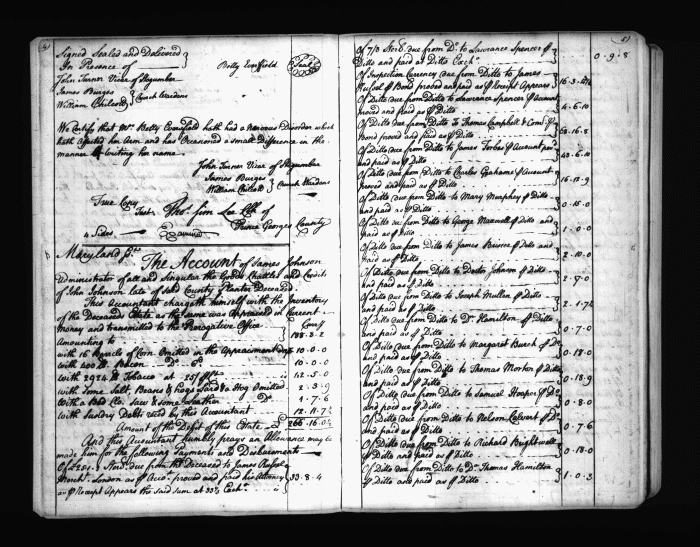 Signed Sealed and Delivered
In Presence of
Betty Evesfield
Seal
John Turner Vicar of
James Burges
William
Church Wardens
We Certify that Mrs. Betty Evesfield hath had a Nervous Disorder which
hath Affected her Arm and has Occasioned a small Difference in the
manner of writing her name
John Turner Vicar of
James Burges
William
Church Wardens
True Copy
Test
Thos. Sim Lee Clk of
Prince Georges County
4 Sides
Examined
Maryland Ss.
The Account of James Johnson
Administrator of all and Singular the Goods Chattles and Credits
of John Johnson late of said County Planter Deceased
This Accountant chargeth himself with the Inventory
of the Deceased Estate as the same was appraised in Current
Money and transmitted to the Perogative Office
Curry
Amounting to 188.3.2
with 16 Barrels of Corn Omitted in the Appraisment 10.0.0
with 400 lb. Bacon Do. 6d 10.0.0
with 2924 lb Tobacco at 25/ 
with some Salt, Beans & Hog Omitted 2.3.9
with a Bed &c. Saw & some Leather Do. 1.7.6
with Sundry Debts recd by this Accountant 12.11.7½
Amount of the Debit of this Estate £ 266.16.0½
And this Accountant humbly prays an Allowance may be
made him for the following Payments and Disbursements
Of Sterg. due from the Deceased to James Russell
Mercht. London as Accot. proved and paid his Attorney
as Receipt Appears the said Sum at 33⅓ Exchа. 33.8.4
51
Of 7/3 Sterg. due from Do. to Lawrance Spencer
Ditto and paid as Ditto Excha. 0.9.8
Of Inspection Currency due from Ditto to James
Russell Bond proved and paid as Receipt Appears
Of Ditto due from Ditto to Lawrance Spencer Account
proved and paid as Ditto 4.6.10
Of Ditto due from Ditto to Thomas Campbell & Comp.
Bond proved and paid as Ditto
Of Ditto due from Ditto to James Forbes Account paid
and paid as Ditto
Of Ditto due from Ditto to Charles Grahame Account
proved and paid as Ditto 16.12.9
Of Ditto due from Ditto to Mary Murphey Ditto
and paid as Ditto 0.15.0
Of Ditto due from Ditto to George Maxwell Ditto
and paid as Ditto 1.0.0
Of Ditto due from Ditto to James Briscoe Ditto
and paid as Ditto 2.10.0
Of Ditto due from Ditto to Doctr. Johnson Ditto
and paid as Ditto
Of Ditto due from Ditto to Joseph Mullan Ditto
and paid as Ditto 2.1.7½
Of Ditto due from Ditto to Dr. Hamilton Ditto
and paid as Ditto 0.7.0
Of Ditto due from Ditto to Margaret Burch Do.
and paid as Ditto 0.18.0
Of Ditto due from Ditto to Thomas Morton Ditto
and paid as Ditto 0.18.9
Of Ditto due from Ditto to Samuel Hooper Do.
and paid as Ditto 0.8.0
Of Ditto due from Ditto to Nelson Calvert Do.
and paid as Ditto 0.7.6
Of Ditto due from Ditto to Richard Brightwell
Ditto and paid as Ditto 0.18.0
Of Ditto due from Ditto to Dr. Thomas Hamilton
Ditto and paid as Ditto 1.0.3